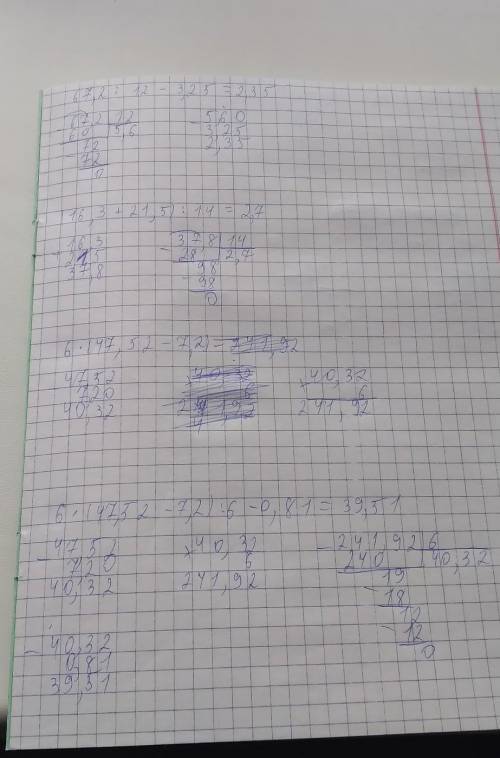 67,2 : 12 - 3,25 = 2,35
67,2 12
60 5,6
72
72
0
5,60
3,25
2,35
16,3 + 21,5) : 14 = 2,7
16,3
21,5
37,8
37,8 14
28 2,7
98
98
0
6 · (47,52 - 7,2) =
47,52
7,20
40,32
× 40,32
6
241,92
6 · (47,52 - 7,2) : 6 - 0,81 = 39,51
- 47,52
7,20
40,32
× 40,32
6
241,92
- 241,92 6
240 40,32
19
- 18
12
- 12
0
- 40,32
0,81
39,51